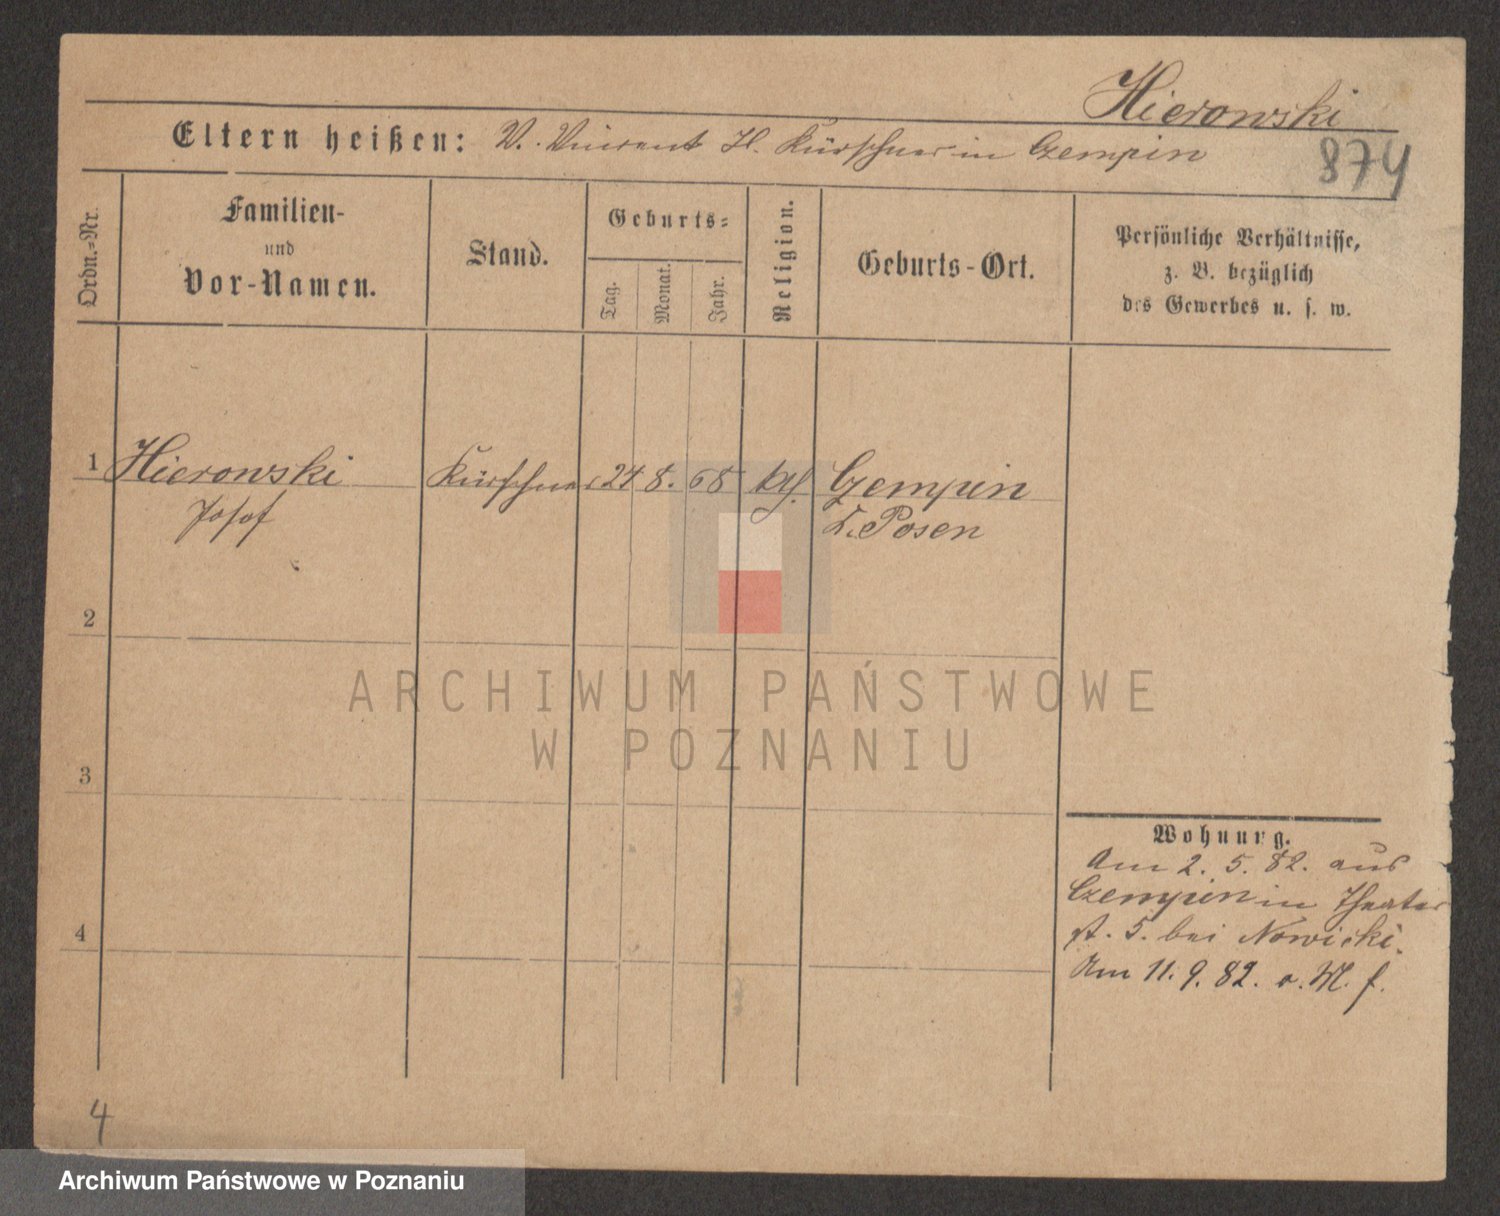 Hierowski
Eltern heißen: V. Vincent H. Kürschner in Czempin
874
Ordn.-Nr.
Familien-
und
Vor-Namen.
Stand.
Geburts-
Tag.
Monat.
Jahr.
Religion.
Geburts-Ort.
Persönliche Verhältnisse,
z. B. bezüglich
des Gewerbes u. s. w.
1 Hierowski Kürschner 24 8. 68 kth. Czempin
Josef
Posen
2
ARCHIWUM PAŃSTWOWE
W POZNANIU
3
Wohnung.
Am 2. 5. 82. aus
Czempin in Theater
st. 5. bei Nowicki.
4
Am 11. 9. 82. o. M. f.
4
Archiwum Państwowe w Poznaniu